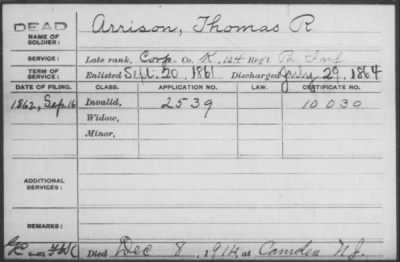 DEAD
NAME OF SOLDIER:
Arrison, Thomas R
SERVICE:
Late rank, Corp. Co. K, 124 Reg't Pa Inf
TERM OF SERVICE:
Enlisted Sept. 20, 1861 Discharged July 29, 1864
DATE OF FILING. CLASS. APPLICATION NO. LAW. CERTIFICATE NO.
1862, Sep 16 Invalid, 2539 10030
Widow,
Minor,
ADDITIONAL SERVICES:
REMARKS:
Died Dec 8, 1914 at Camden N.J.